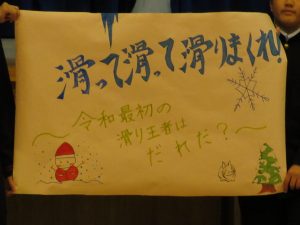 滑って滑って滑りまくれ!
～令和最初の
滑り王者は
だれだ?～